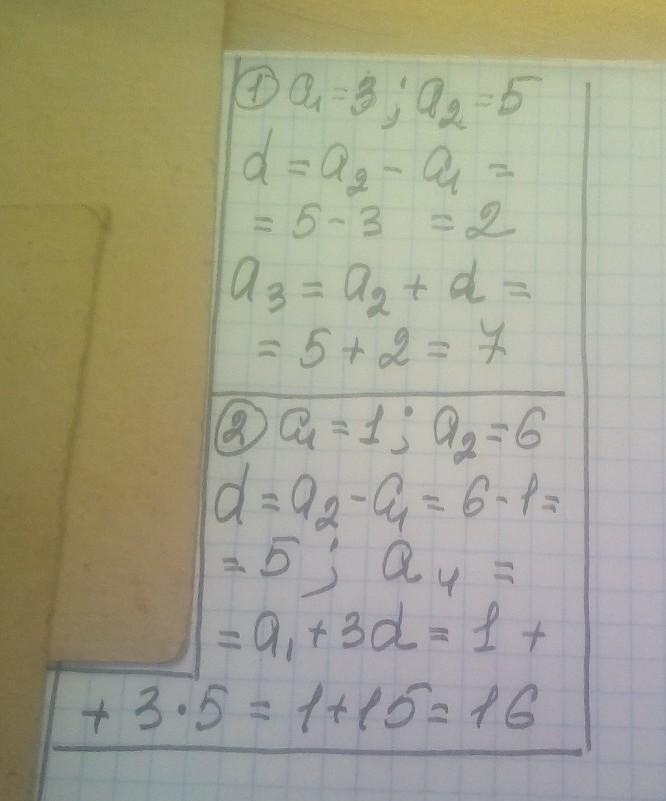 ① a₁ = 3 ; a₂ = 5
d = a₂ - a₁ =
= 5 - 3 = 2
a₃ = a₂ + d =
= 5 + 2 = 7
② a₁ = 1 ; a₂ = 6
d = a₂ - a₁ = 6 - 1 =
= 5 ; a₄ =
= a₁ + 3d = 1 +
+ 3 · 5 = 1 + 15 = 16